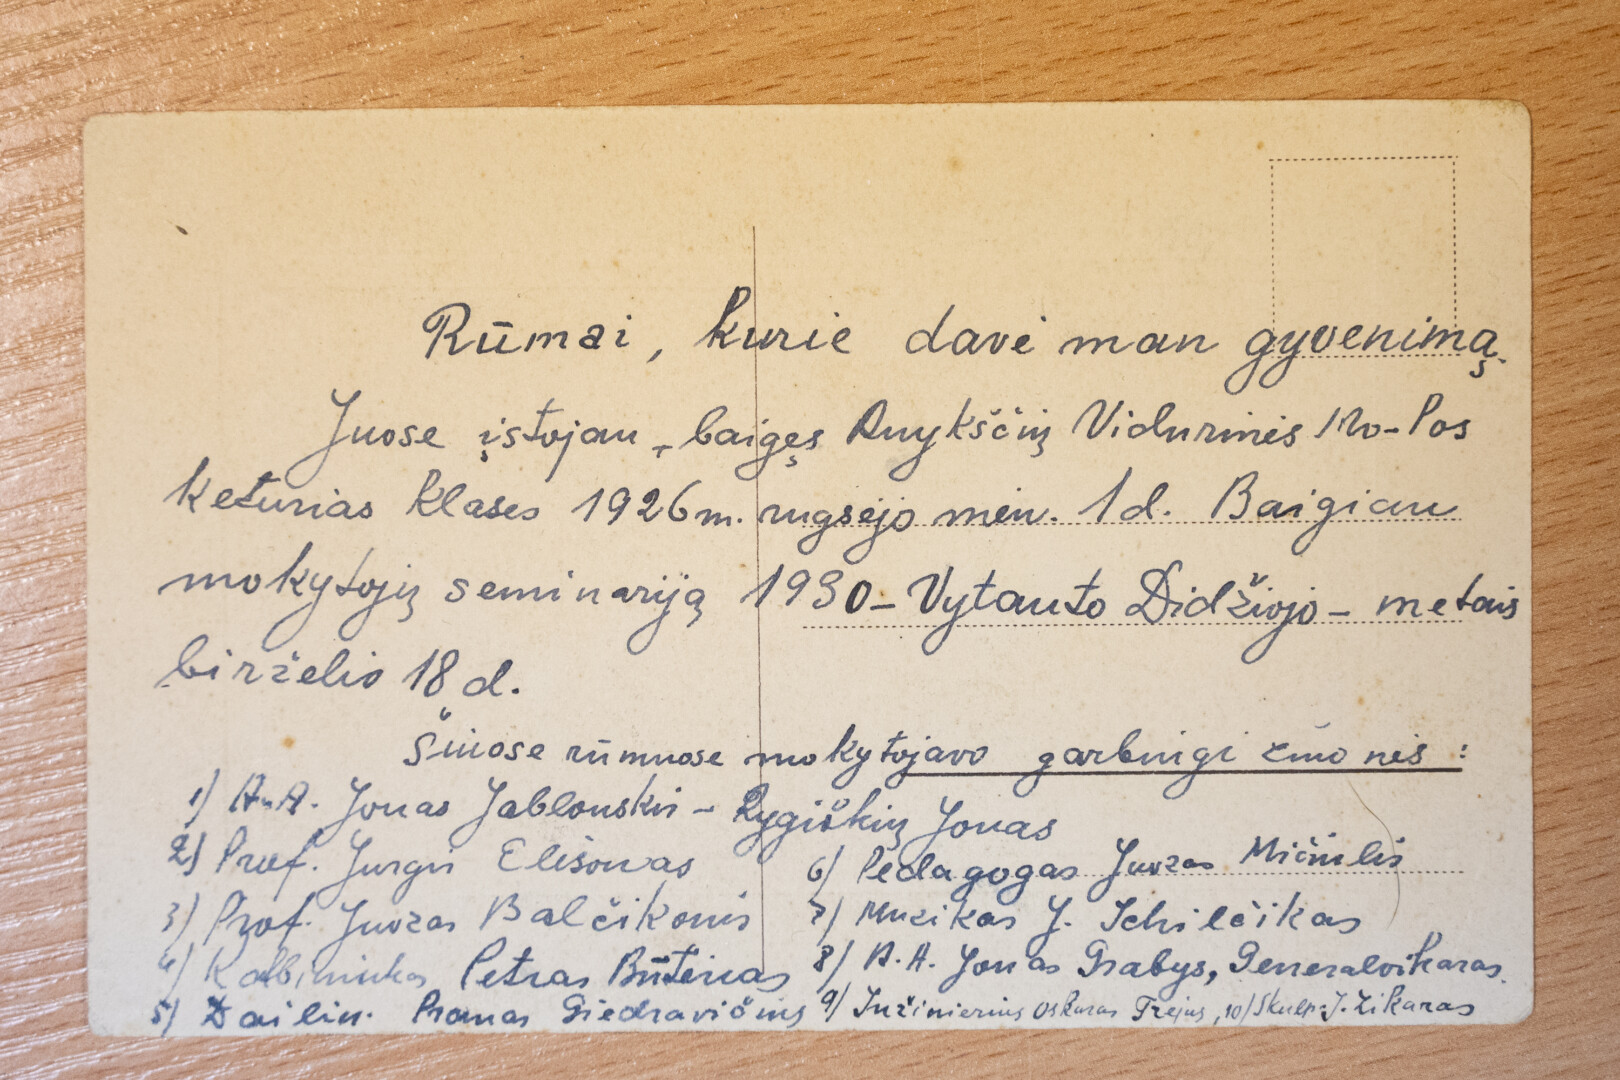 Rūmai, kurie davė man gyvenimą.
Juose įstojau, baigęs Anykščių Vidurinės Mo-los
keturias klases 1926 m. rugsėjo mėn. 1 d. Baigiau
mokytojų seminariją 1930 – Vytauto Didžiojo – metais
birželio 18 d.
Šiuose rūmuose mokytojavo garbingi žmonės :
1) A.A. Jonas Jablonskis – Rygiškių Jonas
2) Prof. Jurgis Elisonas
3) Prof. Juozas Balčikonis
4) Kalbininkas Petras Būtėnas
5) Dailin. Pranas Giedravičius
6) Pedagogas Juozas Mičiulis
7) Muzikas J.
8) A.A. Jonas Grabys, Generalvikaras.
9) Inžinierius Oskaras Trejus, 10) Skulp. J. Zikaras